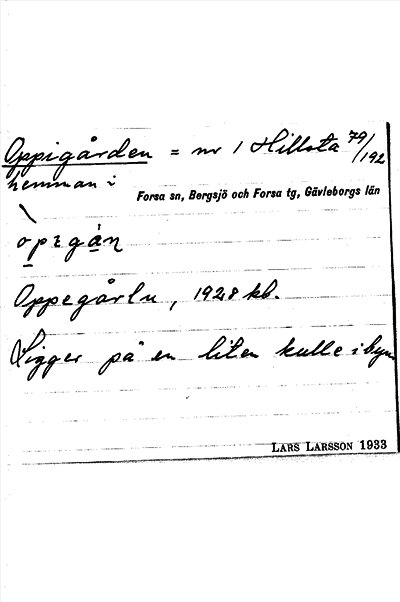 Oppigården = nr 1 Hillsta 79/192
hemman i
Forsa sn, Bergsjö och Forsa tg, Gävleborgs län
Oppegårln, 1928 kb.
Ligger på en liten kulle i byn
LARS LARSSON 1933